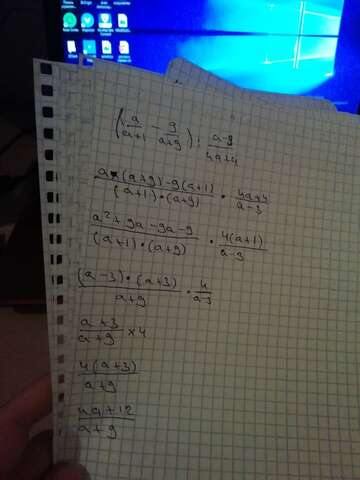 (a/(a+1) - 9/(a+9)) : (a-3)/(4a+4)
(a·(a+9)-9(a+1))/((a+1)·(a+9)) · (4a+4)/(a-3)
(a²+9a-9a-9)/((a+1)·(a+9)) · (4(a+1))/(a-3)
((a-3)·(a+3))/(a+9) · 4/(a-3)
(a+3)/(a+9) × 4
(4(a+3))/(a+9)
(4a+12)/(a+9)